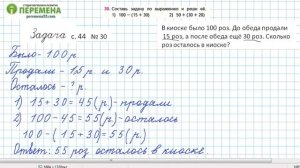 ПЕРЕМЕНА
30. Составь задачу по выражению и реши её.
1) 100 − (15 + 30) 2) 50 + (30 + 20)
Задача с. 44 № 30
В киоске было 100 роз. До обеда продали
15 роз, а после обеда ещё 30 роз. Сколько
роз осталось в киоске?
Было - 100 р.
Продали - 15 р и 30 р.
Осталось - ?
1) 15 + 30 = 45 (р) - продали
2) 100 - 45 = 55 (р) - осталось
100 - (15 + 30) = 55 (р.)
Ответ: 55 роз осталось в киоске.